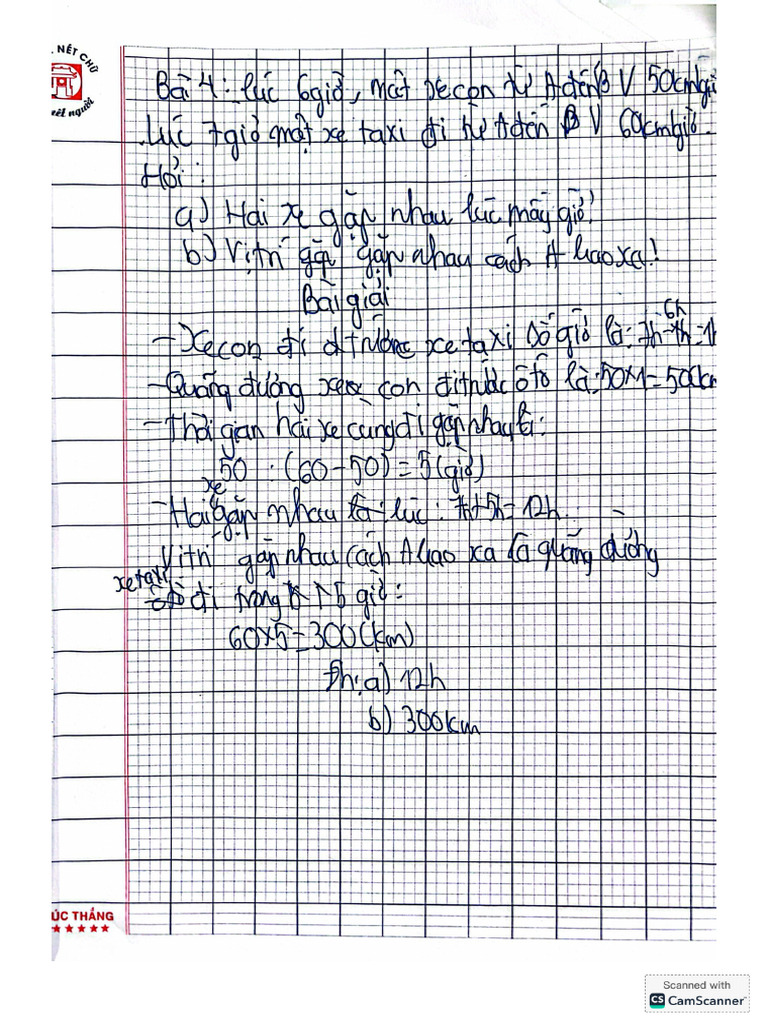 NÉT CHỮ
nết người
Bài 4: lúc 6giờ, một xe con từ A đến B V 50km/giờ
Lúc 7giờ một xe taxi đi từ A đến B V 60km/giờ.
Hỏi:
a) Hai xe gặp nhau lúc mấy giờ?
b) Vị trí gặp nhau cách A bao xa!
Bài giải
- Xe con đi trước xe taxi số giờ là: 7h-6h=1h
- Quãng đường xe con đi trước ô tô là: 50x1=50km
- Thời gian hai xe cùng đi gặp nhau là:
50 : (60-50) = 5 (giờ)
- Hai xe gặp nhau lúc: 7h+5h=12h.
Vị trí gặp nhau cách A bao xa là quãng đường
xe taxi đi trong 5 giờ:
60x5=300(km)
Đh: a) 12h
b) 300km
ÚC THẮNG
Scanned with
CS CamScanner